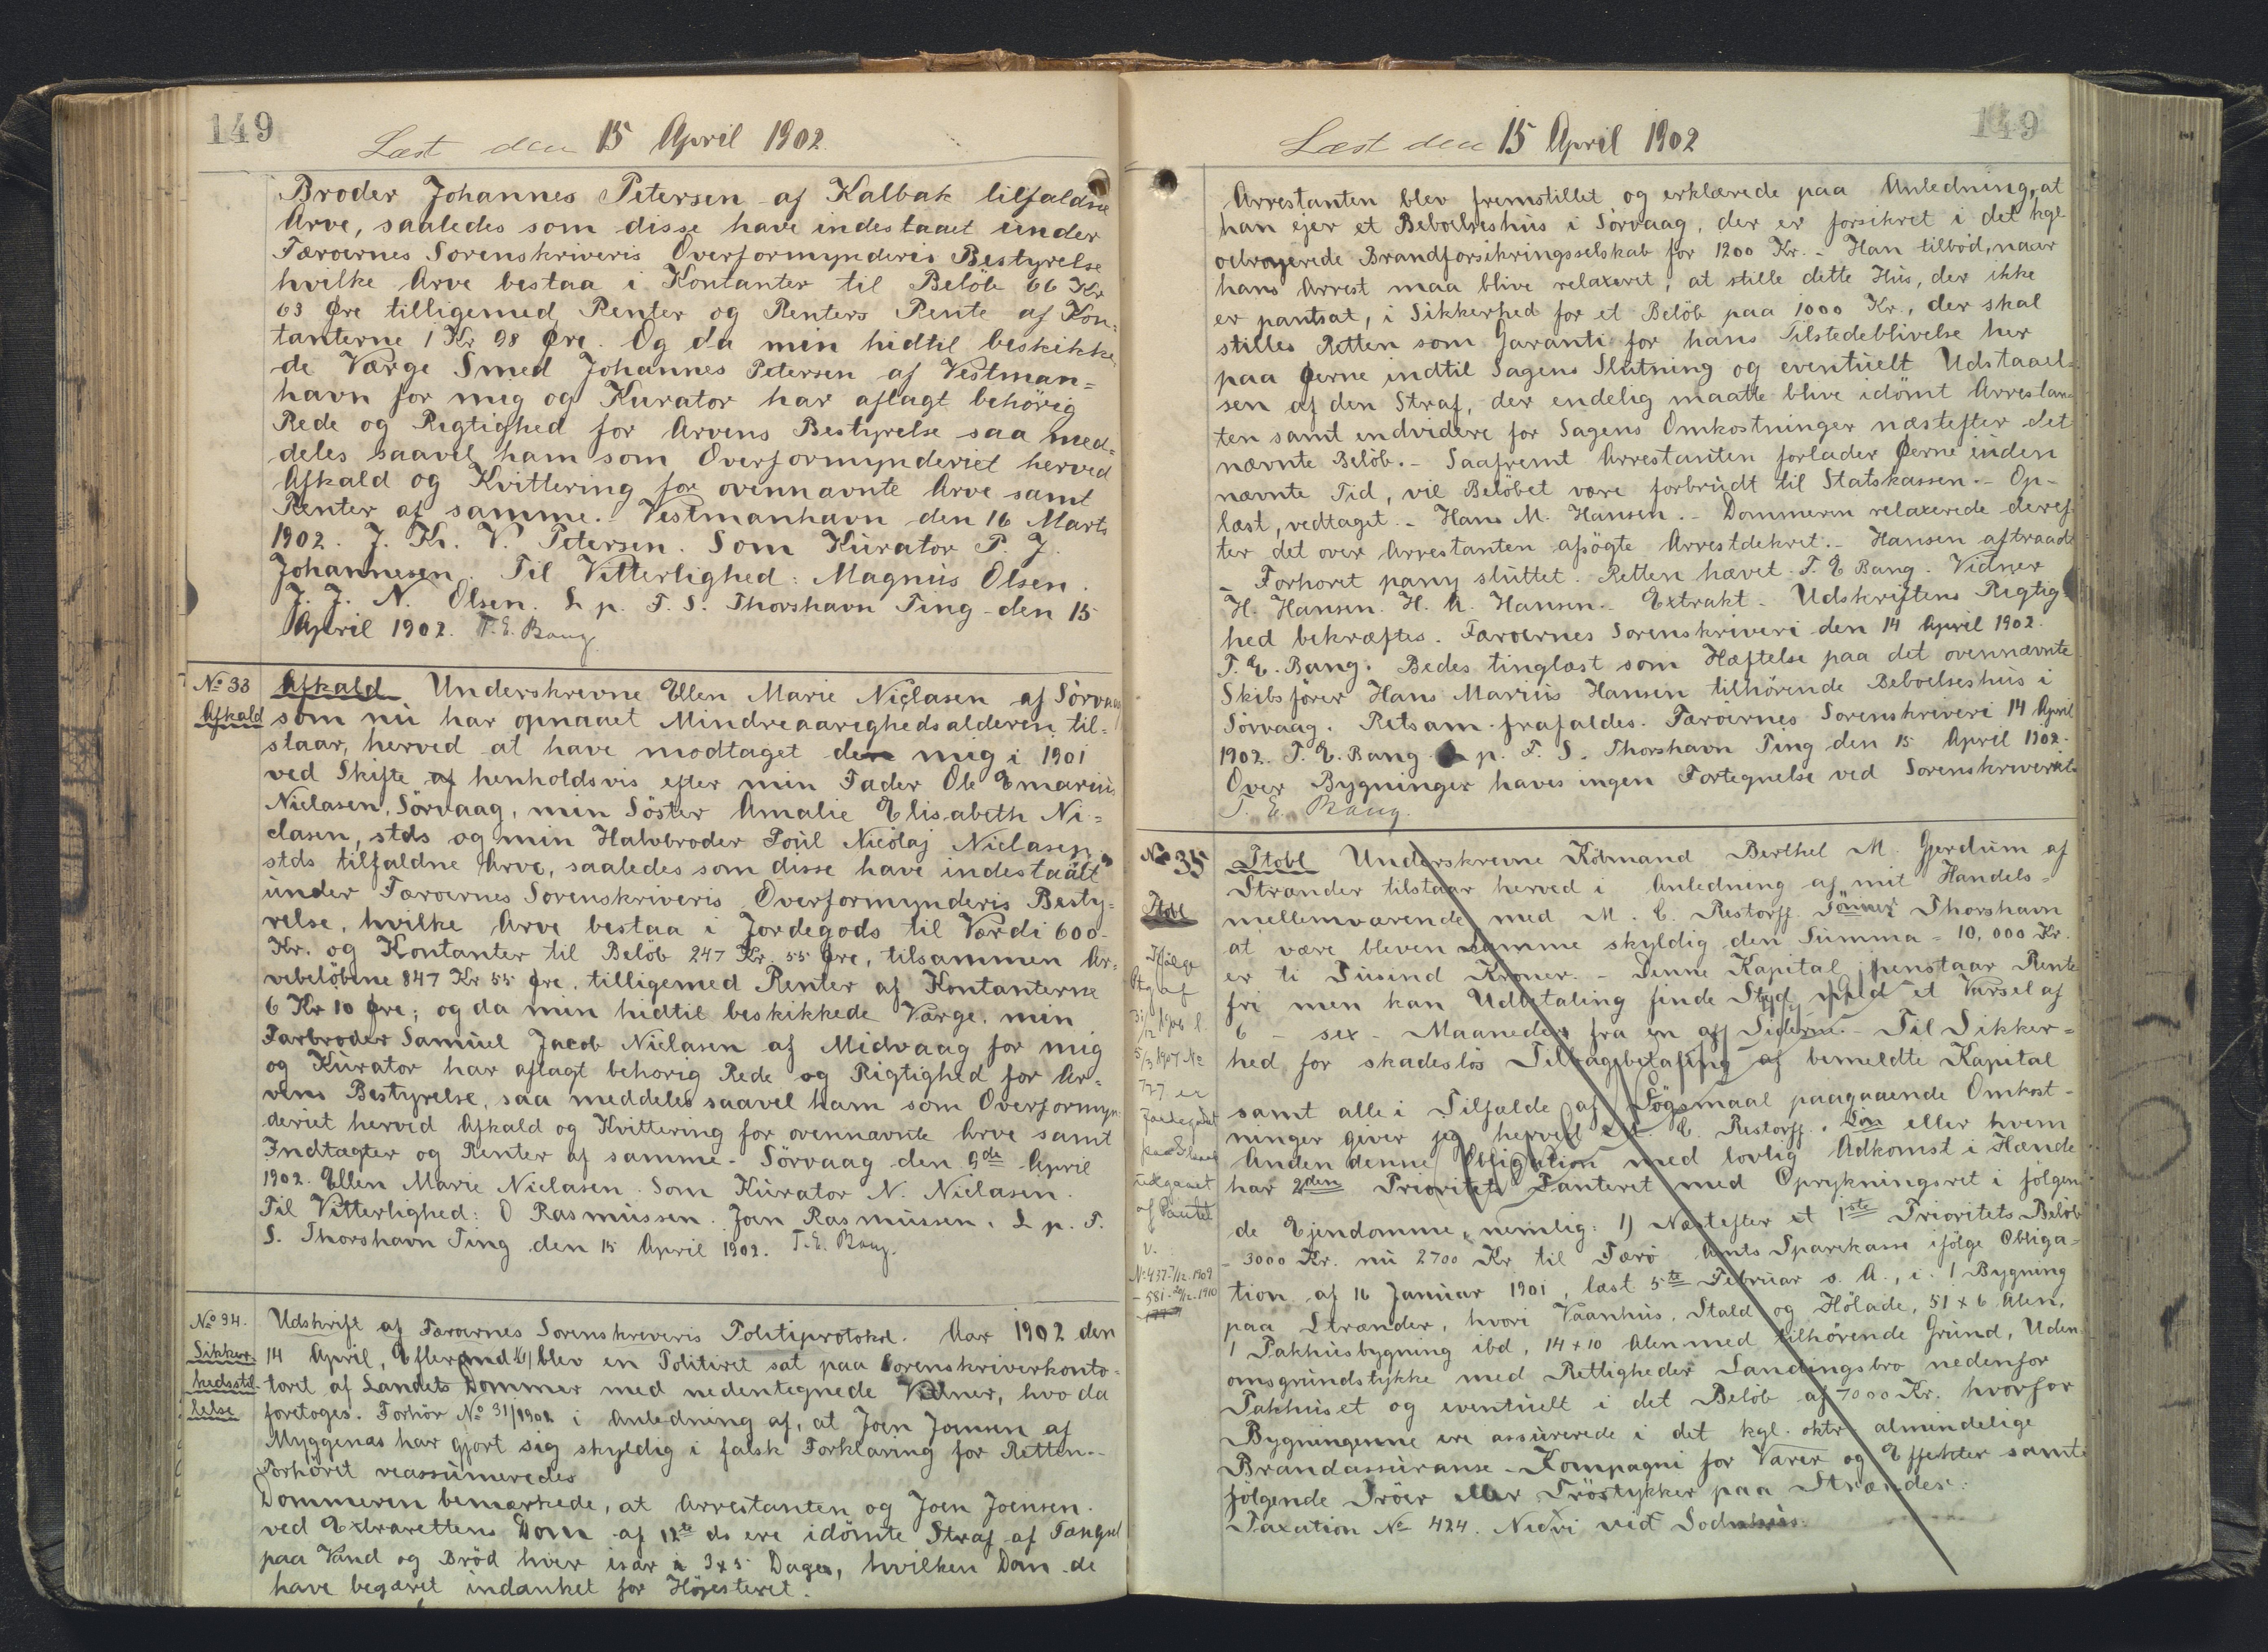 149
Læst den 15 April 1902
Broder Johannes Petersen af Kalbak tilfaldne
Arve, saaledes som disse have indestaaet under
Færøernes Sorenskriveris Overformynderis Bestyrelse
hvilke Arve bestaa i Kontanter til Beløb 66 Kr
63 Øre tilligemed Renter og Renters Rente af Kon=
tanterne 1 Kr 98 Øre. Og da min hidtil beskikke
de Værge Smed Johannes Petersen af Vestman=
havn for mig og Kurator har aflagt behörig
Rede og Rigtighed for Arvens Bestyrelse saa med=
deles saavel ham som Overformynderiet herved
Afkald og Kvittering for ovennævnte Arve samt
Renter af samme. Vestmanhavn den 16 Marts
1902. J. Kr. V. Petersen. Som Kurator P. J.
Johannesen. Til Vitterlighed: Magnus Olsen.
J. J. N. Olsen. L p. F. S. Thorshavn Ting den 15
April 1902. T. E. Bang
No 33
Afkald
Afkald Underskrevne Ellen Marie Niclasen af Sörvaag
som nu har opnaaet Mindreaarighedsalderen til=
staar, herved at have modtaget den mig i 1901
ved Skifte af henholdsvis efter min Fader Ole Emarius
Niclasen, Sörvaag, min Söster Amalie Elisabeth Ni=
clasen, stds og min Halvbroder Poul Nicolaj Niclasen
stds tilfaldne Arve, saaledes som disse have indestaaet
under Færøernes Sorenskriveris Overformynderis Besty=
relse, hvilke Arve bestaa i Jordegods til Værdi 600
Kr. og Kontanter til Beløb 247 Kr. 55 Øre, tilsammen Ar=
vebelöbene 847 Kr 55 Øre, tilligemed Renter af Kontanterne
6 Kr 10 Øre; og da min hidtil beskikkede Værge, min
Farbroder Samuel Jacob Niclasen af Midvaag for mig
og Kurator har aflagt behörig Rede og Rigtighed for Ar=
vens Bestyrelse, saa meddeles saavel ham som Overformyn
deriet herved Afkald og Kvittering for ovennævnte Arve samt
Indtægter og Renter af samme. Sörvaag den 9de April
1902. Ellen Marie Niclasen. Som Kurator N. Niclasen.
Til Vitterlighed: O Rasmussen. Joen Rasmussen. L p. F.
S. Thorshavn Ting den 15 April 1902. T. E. Bang.
No 34.
Sikker
hedsstil-
lelse
Udskrift af Færøernes Sorenskriveris Politiprotokol. Aar 1902 den
14 April, Eftermid blev en Politiret sat paa Sorenskriverkonto=
toret af Landets Dommer med nedentegnede Vidner, hvo da
foretoges. Forhör No 31/1902 i Anledning af, at Joen Joensen af
Myggenæs har gjort sig skyldig i falsk Forklaring for Retten.-
Forhöret reassumeredes
Dommeren bemærkede, at Arrestanten og Joen Joensen.
ved Extrarettens Dom af 12te ds ere idömte Straf af Fængsel
paa Vand og Bröd hver især i 3x5 Dage, hvilken Dom de
have begæret indanket for Höjesteret.
149
Læst den 15 April 1902
Arrestanten blev fremstillet og erklærede paa Anledning, at
han ejer et Beboelseshus i Sörvaag, der er forsikret i det kgl
octroyerede Brandforsikringsselskab for 1200 Kr. - Han tilböd, naar
hans Arrest maa blive relaxeret, at stille dette Hus, der ikke
er pantsat, i Sikkerhed for et Belöb paa 1000 Kr., der skal
stilles Retten som Garanti for hans Tilstedeblivelse her
paa Øerne indtil Sagens Slutning og eventuelt Udstaael
sen af den Straf, der endelig maatte blive idömt Arrestan=
ten samt endvidere for Sagens Omkostninger næstefter det
nævnte Belöb. - Saafremt Arrestanten forlader Øerne inden
nævnte Tid, vil Belöbet være forbrudt til Statskassen. - Op-
læst, vedtaget. - Hans M. Hansen. - Dommeren relaxerede deref
ter det over Arrestanten afsögte Arrestdekret. - Hansen aftraadt
- Forhöret paany sluttet. Retten hævet. T. E Bang. Vidner
H. Hansen. H. A. Hansen. - Extrakt - Udskriftens Rigtig
hed bekræftes. Færøernes Sorenskriveri den 14 April 1902.
T. E. Bang. Bedes tinglæst som Hæftelse paa det ovennævnte
Skibsförer Hans Marius Hansen tilhörende Beboelseshus i
Sörvaag. Retsam. frafaldes. Færöernes Sorenskriveri 14 April
1902. T. E. Bang. L p. F. S. Thorshavn Ting den 15 April 1902.
Over Bygninger haves ingen Fortegnelse ved Sorenskriveriet.
T. E. Bang.
No 35
Ptobl
Ifölge
Ptg af
31/12 1906 l.
5/3 1907 No
727 er
Jordegodset
paa
udgaaet
af Pantet
v.
No 437 7/12.1909
- 581 - 20/12.1910
Ptobl Underskrevne Köbmand Berthel M. Gjerdum af
Strænder tilstaar herved i Anledning af mit Handels=
mellemværende med M. C. Restorff Sönner Thorshavn
at være bleven samme skyldig den Summa = 10,000 Kr.
er ti Tusind Kroner. - Denne Kapital henstaar Rente
fri men kan Udbetaling finde Sted med et Varsel af
6 - sex - Maaneder fra en af Siderne. - Til Sikker=
hed for skadeslös Tilbagebetaling af bemeldte Kapital
samt alle i Tilfælde af Sögsmaal paagaaende Omkost=
ninger giver jeg herved M. C. Restorff. Sön eller hvem
Anden denne Obligation med lovlig Adkomst i Hænde
har 2den Prioritets Panteret med Oprykningsret i fölgen
de Ejendomme, nemlig: 1) Næstefter et 1ste Prioritets Belöb
- 3000 Kr. nu 2700 Kr til Færö Amts Sparekasse ifölge Obliga=
tion af 16 Januar 1901, læst 5te Februar s. A., i 1 Bygning
paa Strænder, hvori Vaanhus, Stald og Hölade, 51 x 6 Alen,
1 Pakhusbygning ibd, 14 x 10 Alen med tilhörende Grund, Uden
omsgrundstykke med Rettigheder Landingsbro nedenfor
Pakhuset og eventuelt i det Belöb af 7000 Kr. hvorfor
Bygningerne ere assurerede i det kgl. oktr. almindelige
Brandassuranse-Kompagni for Varer og Effekter samt
fölgende Tröer eller Tröstykker paa Strænder:
Taxation No 424. Nidri vid